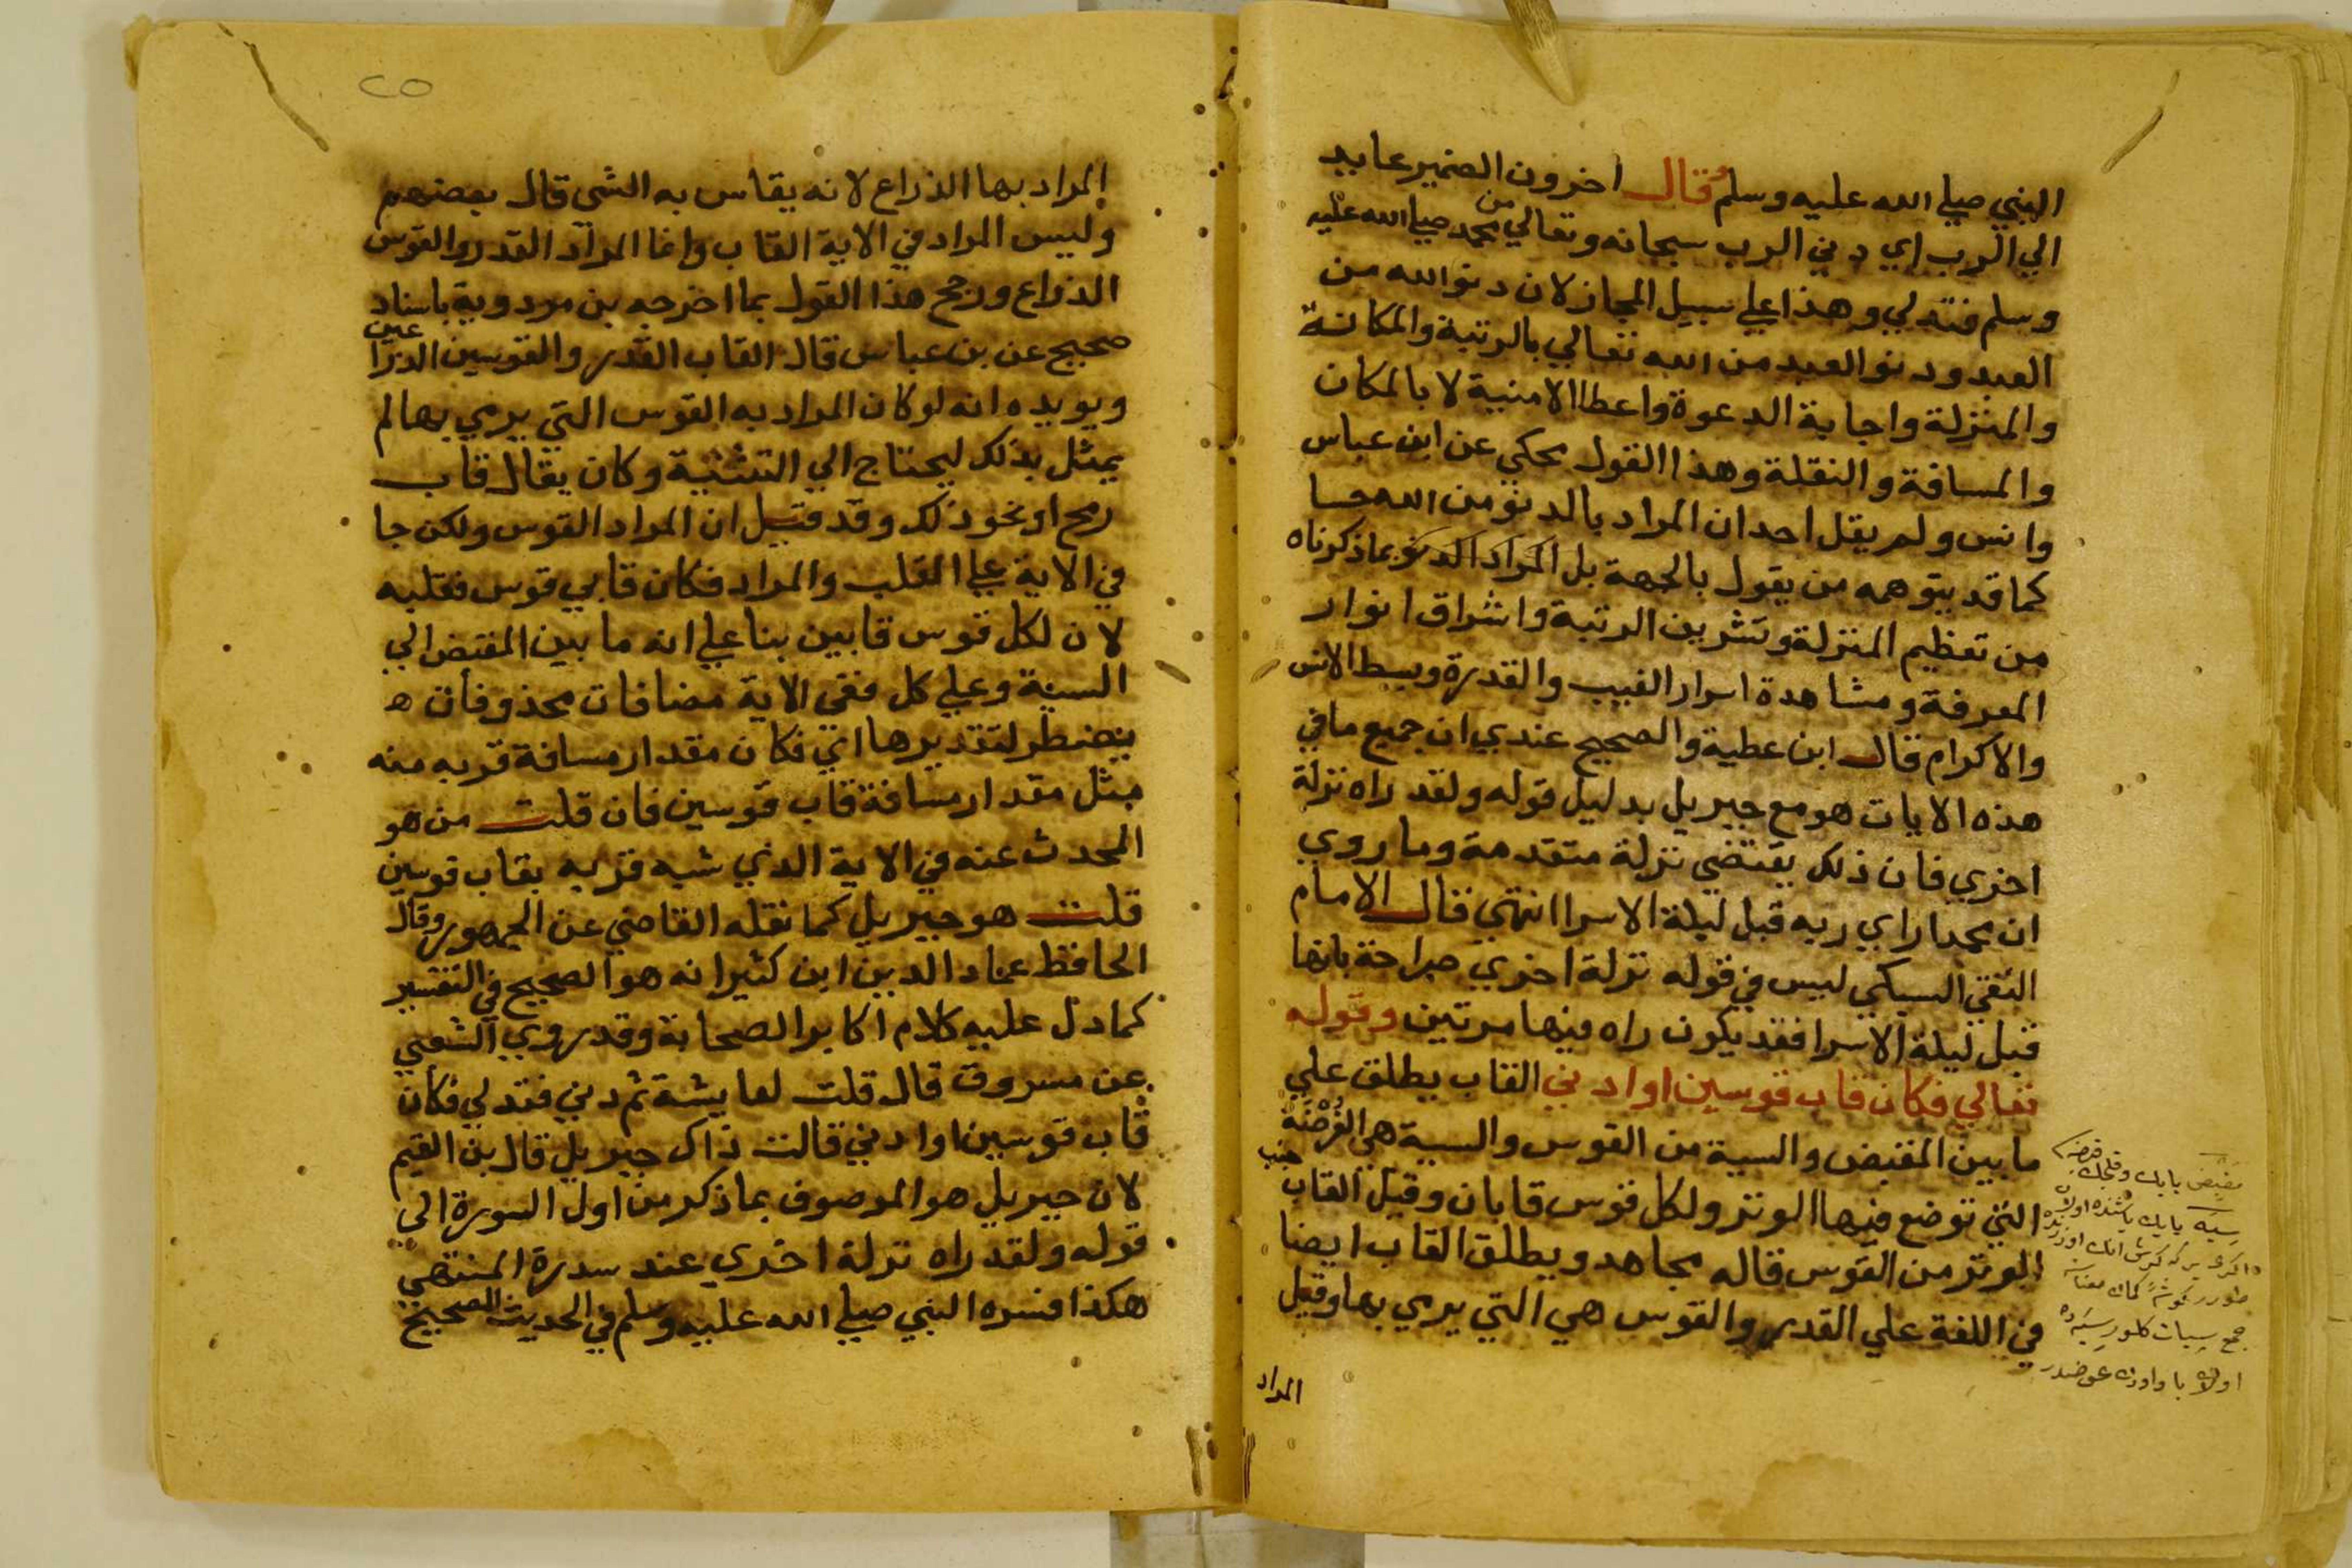 النبي صلي الله عليه وسلم قال اخرون الضمير عايد
الي الرب اي دني الرب سبحانه وتعالي من محمد صلي الله عليه
وسلم فتدلي وهذا علي سبيل المجاز لان دنو الله من
العبد ودنو العبد من الله تعالي بالرتبة والمكانة
والمنزلة واجابة الدعوة واعطا الامنية لا بالمكان
والمسافة والنقلة وهذا القول محكي عن ابن عباس
وانس ولم يقل احد ان المراد بالدنو من الله حسا
كما قد يتوهمه من يقول بالجهة بل المراد الدنو بما ذكرناه
من تعظيم المنزلة وتشريف الرتبة واشراق انوار
المعرفة ومشاهدة اسرار الغيب والقدرة وبسط الانس
والاكرام قال ابن عطية والصحيح عندي ان جميع ما في
هذه الايات هو مع جبريل بدليل قوله ولقد راه نزلة
اخري فان ذلك يقتضي نزلة متقدمة وما روي
ان محمدا راي ربه قبل ليلة الاسرا انتهي قال الامام
التقي السبكي ليس في قوله نزلة اخري صراحة بانها
قبل ليلة الاسرا فقد يكون راه فيها مرتين وقوله
تعالي فكان قاب قوسين او ادني القاب يطلق علي
ما بين المقبض والسية من القوس والسية هي الفُرْضَة
التي توضع فيها الوتر ولكل قوس قابان وقيل القاب جنب
الوتر من القوس قاله مجاهد ويطلق القاب ايضا
في اللغة علي القدر والقوس هي التي يرمي بها وقيل
المراد
مقبض
سيه
جمع سيات كلور
المراد بها الذراع لانه يقاس به الشي قال بعضهم
وليس المراد في الاية القاب وانما المراد القدر والقوس
الذراع ورجح هذا القول بما اخرجه بن مردوية باسناد
صحيح عن بن عباس قال القاب القدر والقوسين الذراعين
ويويده انه لو كان المراد به القوس التي يرمي بها لم
يمثل بذلك ليحتاج الي التثنية وكان يقال قاب
رمح او نحو ذلك وقد قيل ان المراد القوس ولكن جا
في الاية علي القلب والمراد فكان قابي قوس فقلبه
لان لكل قوس قابين بنا علي انه ما بين المقبض الي
السية وعلي كل ففي الاية مضافات محذوفات ه
يضطر لتقديرها اي فكان مقدار مسافة قربه منه
مثل مقدار مسافة قاب قوسين فان قلت من هو
المحدث عنه في الاية الذي شبه قربه بقاب قوسين
قلت هو جبريل كما نقله القاضي عن الجمهور وقال
الحافظ عماد الدين ابن كثير انه هو الصحيح في التفسير
كما دل عليه كلام اكابر الصحابة وقد روي الشعبي
عن مسروق قال قلت لعايشة ثم دني فتدلي فكان
قاب قوسين او ادني قالت ذاك جبريل قال بن القيم
لان جبريل هو الموصوف بما ذكر من اول السورة الي
قوله ولقد راه نزلة اخري عند سدرة المنتهي
هكذا فسره النبي صلي الله عليه وسلم في الحديث الصحيح